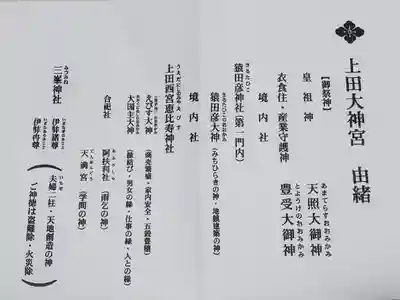 上田大神宮 由緒
【御祭神】
皇祖神 天照大御神
あまてらすおおみかみ
衣食住・産業守護神 豊受大御神
とようけのおおみかみ
境内社
猿田彦神社(第一門内)
さるたひこ
猿田彦大神(みちひらきの神・地鎮建築の神)
さるたひこのおおかみ
境内社
上田西宮恵比寿神社
うえだにしのみやえびす
えびす大神(商売繁盛・家内安全・五穀豊穣)
大国主大神(縁結び・男女の縁・仕事の縁・人との縁)
合祀社 阿扶利社(雨乞の神)
あふりしゃ
天満宮(学問の神)
てんまんぐう
三峯神社
みつみね
伊弉諾尊
いざなぎのみこと
伊弉冉尊
いざなみのみこと
夫婦二柱・天地創造の神
ご神徳は盗難除・火災除